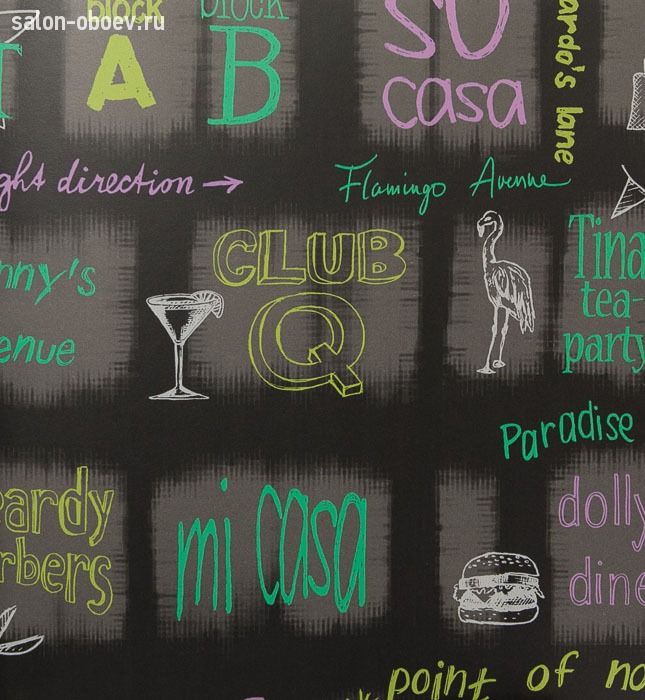 salon-oboev.ru
block
A
block
B
SU
casa
ardo's lane
ght direction →
Flamingo Avenue
nny's
enue
CLUB
Q
Tina
tea-
party
Paradise
eardy
rbers
mi casa
dolly
dine
point of no